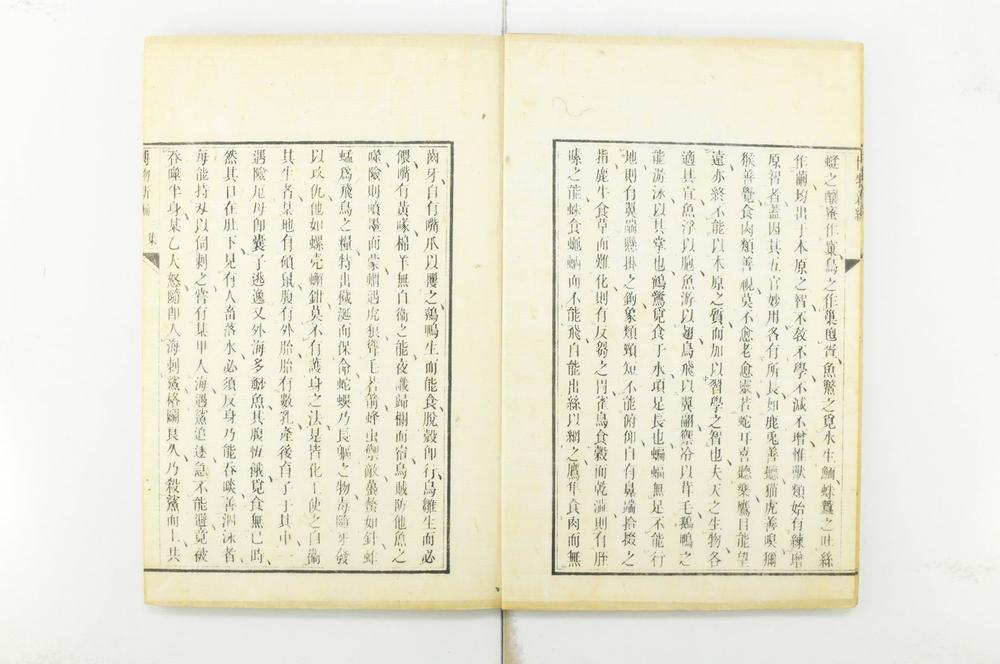 蜂之釀蜜作窠鳥之作巢龜胥魚鱉之覓水生蛛蠶之吐絲
作繭均出于本原之智不敎不學不減不增惟獸類始有練增
原智者蓋因其五官妙用各有所長如鹿兎善聽猫虎善嗅獼
猴善覺食肉類善視莫不愈老愈靈若蛇耳喜聽樂鷹目能望
遠亦終不能以本原之質而加以習學之智也夫天之生物各
適其宜魚浮以胞魚游以翅鳥飛以翼翮禦冷以茸毛鵝鴨之
能游泳以其掌也鶴鷺覓食于水項足長也蝙蝠無足不能行
地則有翼鈎懸掛之鉤象類頸短不能俯仰自有鼻端拾掇之
指鹿牛食草而難化則有反芻之胃雀鳥食穀而乾澁則有脺
嗉之能蛛食蠅蚋而不能飛自能出絲以網之鷹隼食肉而無
齒牙自有嘴爪以攫之鷄鴨生而能食脫殼卽行鳥雛生而必
餵嘴有黃喙棉羊無自衞之能夜識歸欄而宿烏賊防他魚之
噬險則噴墨而蒙蝟遇虎狼聳毛若箭蜂虫禦敵蠆螫如針蚱
蜢爲飛鳥之糧特出穢涎而保命蛇蜈乃長軀之物毒隨牙發
以攻仇他如螺売蠏鉗莫不有護身之法是皆化工使之自衞
其生者某地有碩鼠腹有外胎胎有數乳產後育子于其中一
遇險厄母卽囊子逃逸又外海多鯊魚其腹恆餓覓食無已時
然其口在肚下見有人畜落水必須反身乃能吞啖善泅泳者
每能持刄以伺刺之嘗有某甲人海遇鯊追逐急不能避竟被
吞噬半身某乙大怒隨卽人海刺鯊格鬭良久乃殺鯊而上共
博物新編
集